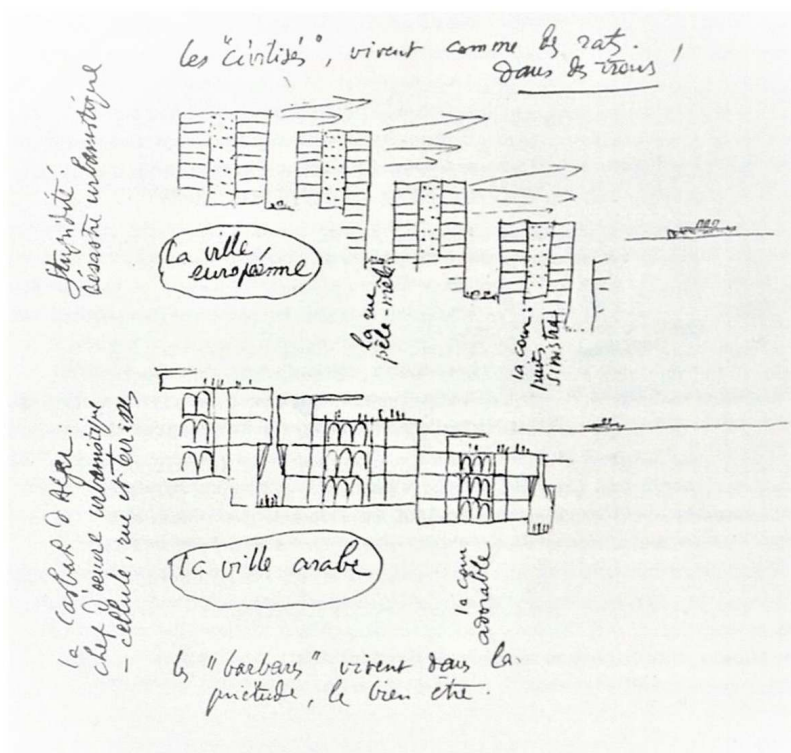 les "civilisés", vivent comme les rats.
dans des trous,
Stupidité
Désastre urbanistique
La ville
européenne
la rue
pêle-mêle
la cour:
puits
sinistre
la Casbah d'Alger:
chef d'œuvre urbanistique
- cellule rue et terrasses
La ville arabe
la cour
adorable
les "barbares" vivent dans la
quiétude, le bien être.